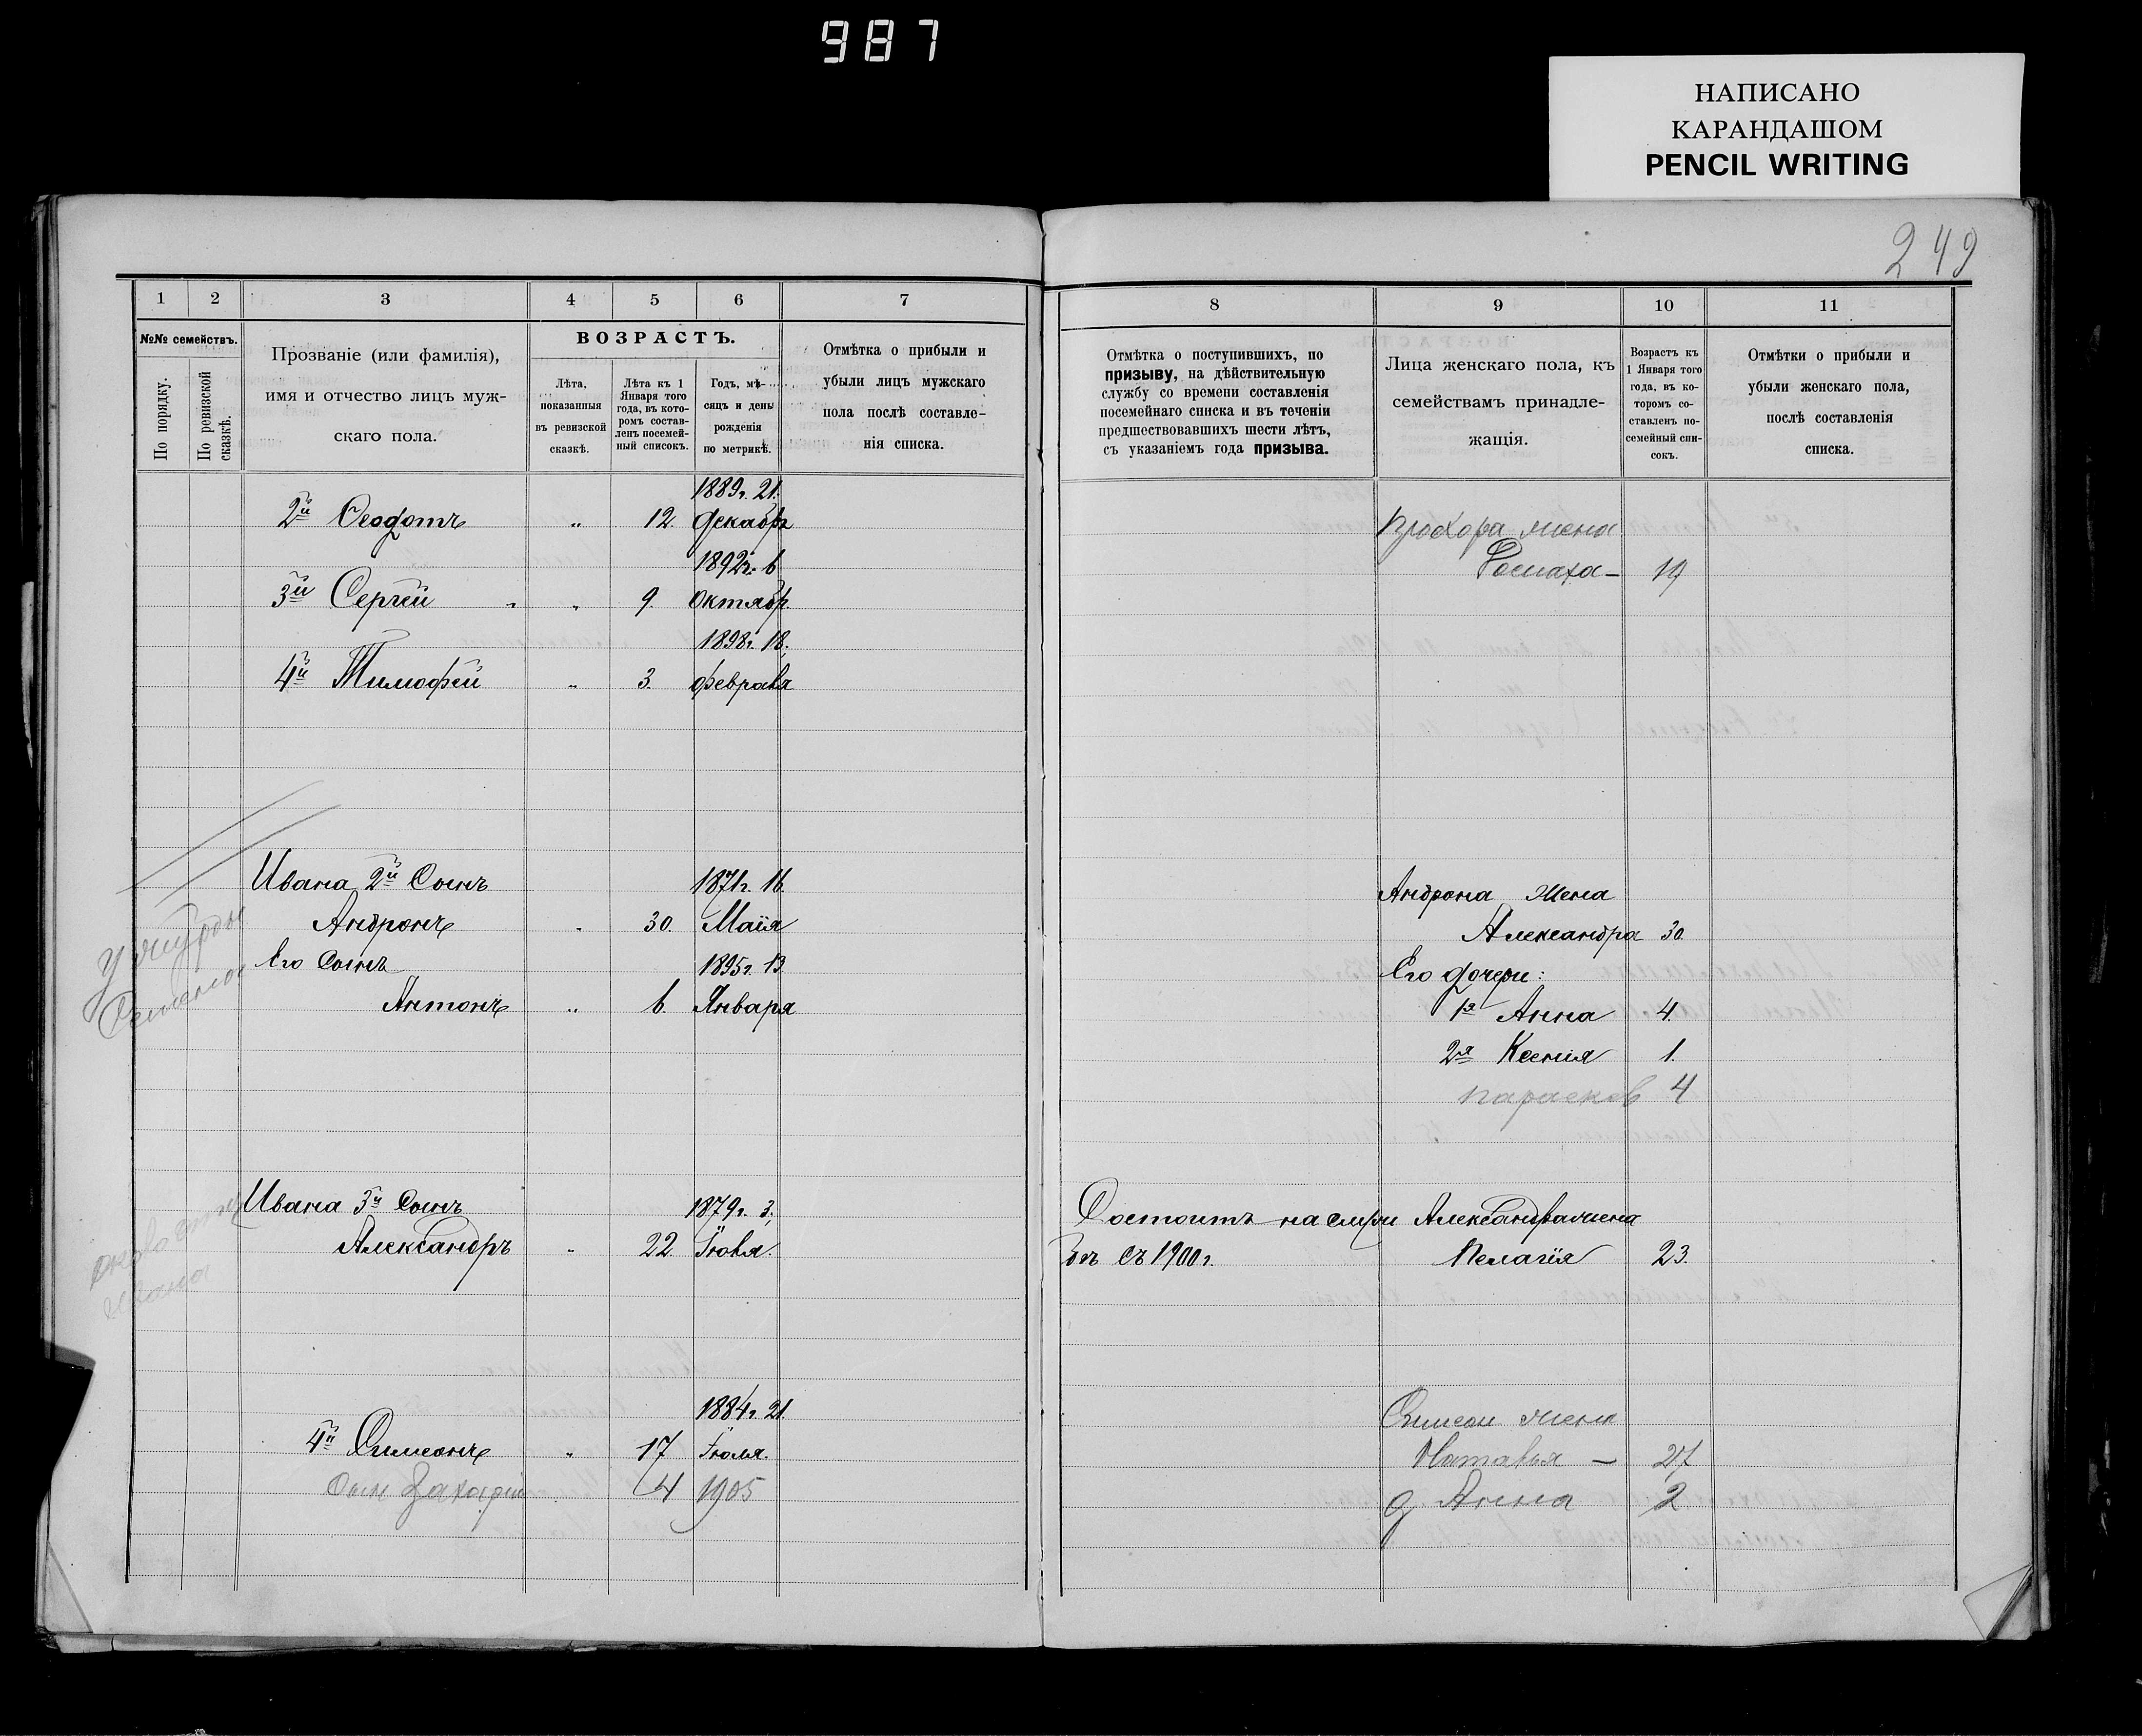 987
НАПИСАНО
КАРАНДАШОМ
PENCIL WRITING
249
1 2 3 4 5 6 7
№№ семействъ.
По порядку.
По ревизской
сказкѣ.
Прозваніе (или фамилія),
имя и отчество лицъ муж-
скаго пола.
ВОЗРАСТЪ.
Лѣта,
показанныя
въ ревизской
сказкѣ.
Лѣта къ 1
Января того
года, въ кото-
ромъ состав-
ленъ посемей-
ный списокъ.
Годъ, мѣ-
сяцъ и день
рожденія
по метрикѣ.
Отмѣтка о прибыли и
убыли лицъ мужскаго
пола послѣ составле-
нія списка.
1889г. 21.
2й Ѳеодотъ " 12. Декабр
1892г. 6
3й Сергѣй " " 9. Октябр.
1898г. 18.
4й Тимофѣй " 3. февраля
Ивана 2й Сынъ 1871г. 16.
Андронъ " 30. Маія
Его Сынъ 1895г. 13.
Антонъ " 6. Января
Семена
Ивана 3й Сынъ 1879г. 3.
Александръ " 22. Іюля.
Ивана
1884г. 21.
4й Симеонъ " 17 Іюля.
Сын Захарій 4 1905
8 9 10 11
Отмѣтка о поступившихъ, по
призыву, на дѣйствительную
службу со времени составленія
посемейнаго списка и въ теченіи
предшествовавшихъ шести лѣтъ,
съ указаніемъ года призыва.
Лица женскаго пола, къ
семействамъ принадле-
жащія.
Возрастъ къ
1 Января того
года, въ ко-
торомъ со-
ставленъ по-
семейный спи-
сокъ.
Отмѣтки о прибыли и
убыли женскаго пола,
послѣ составленія
списка.
Прохора жена
19
Андрона Жена
Александра 30.
Его дочери:
1я Анна 4.
2я Ксенія 1.
Парасков 4
Состоитъ на служ Александра жена
бѣ съ 1900г. Пелагія 23.
Симеон жена
Наталья — 27
д. Анна 2